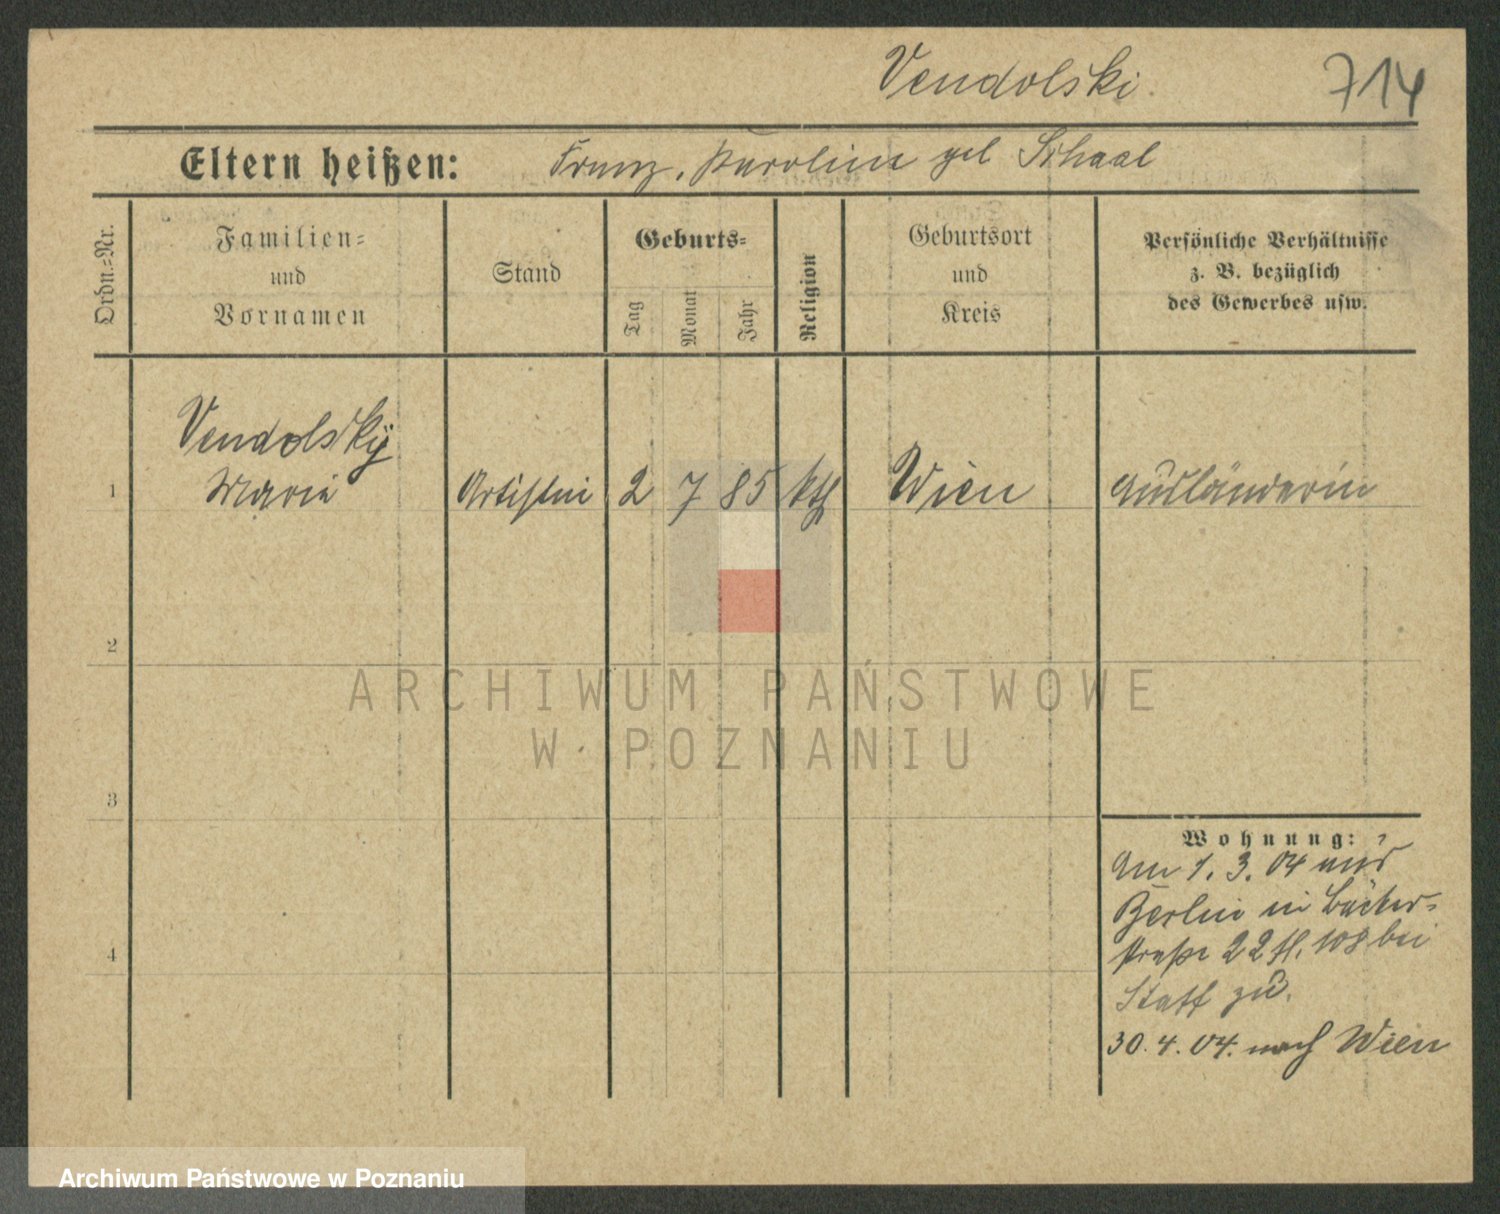 Vendolski. 714
Eltern heißen: Franz, Karolin geb Schaal
Ordn.-Nr.
Familien-
und
Vornamen
Stand
Geburts-
Tag
Monat
Jahr
Religion
Geburtsort
und
Kreis
Persönliche Verhältnisse
z. B. bezüglich
des Gewerbes usw.
Vendolský
1 Marie Artistin 2 7 85 kth Wien Ausländerin
2
3
4
Wohnung:
Am 1. 3. 04 aus
Berlin in Bäcker-
straße 22 II. 108 bei
Staff zu.
30. 4. 04. nach Wien
ARCHIWUM PAŃSTWOWE
W POZNANIU
Archiwum Państwowe w Poznaniu